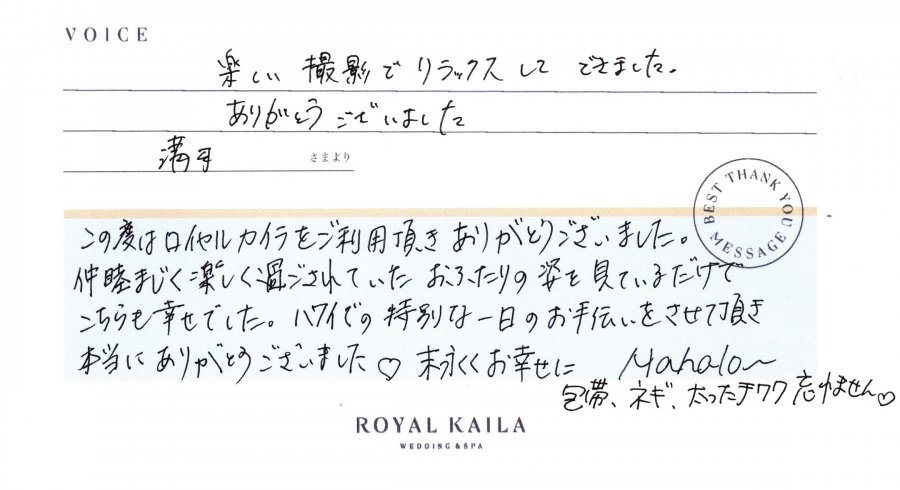 VOICE
楽しい撮影でリラックスしてできました。
ありがとうございました
さまより
BEST THANK YOU MESSAGE
この度はロイヤルカイラをご利用頂きありがとうございました。
仲睦まじく楽しく過ごされていたおふたりの姿を見ているだけで
こちらも幸せでした。ハワイでの特別な一日のお手伝いをさせて頂き
本当にありがとうございました♡ 末永くお幸せに Mahalo〜
包帯、ネギ、太ったチワワ忘れません♡
ROYAL KAILA
WEDDING & SPA